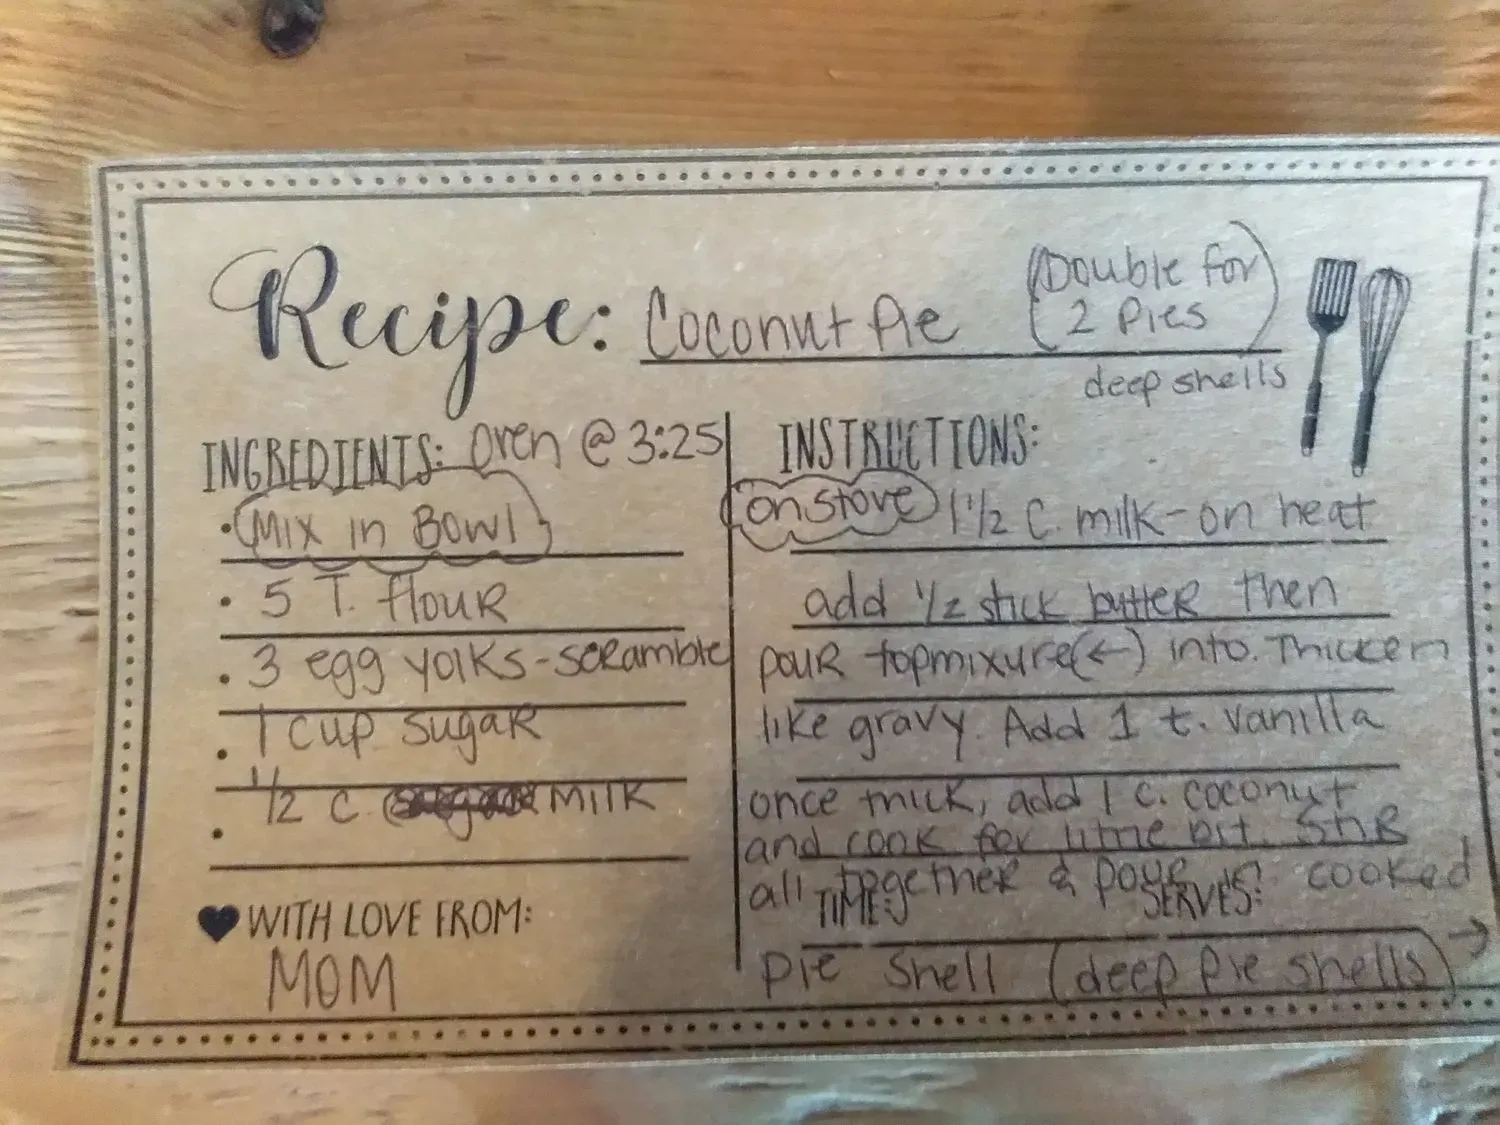 Recipe: Coconut Pie (Double for 2 Pies)
deep shells
INGREDIENTS: Oven @ 3:25
• Mix in Bowl
• 5 T. flour
• 3 egg yolks - scramble
• 1 cup sugar
• 1/2 c. milk
♥ WITH LOVE FROM:
MOM
INSTRUCTIONS:
on stove 1 1/2 c. milk - on heat
add 1/2 stick butter then
pour topmixure (←) into. Thicken
like gravy. Add 1 t. vanilla
once thick, add 1 c. coconut
and cook for little bit. Stir
all together & pour in cooked
TIME: SERVES:
pie shell (deep pie shells) →